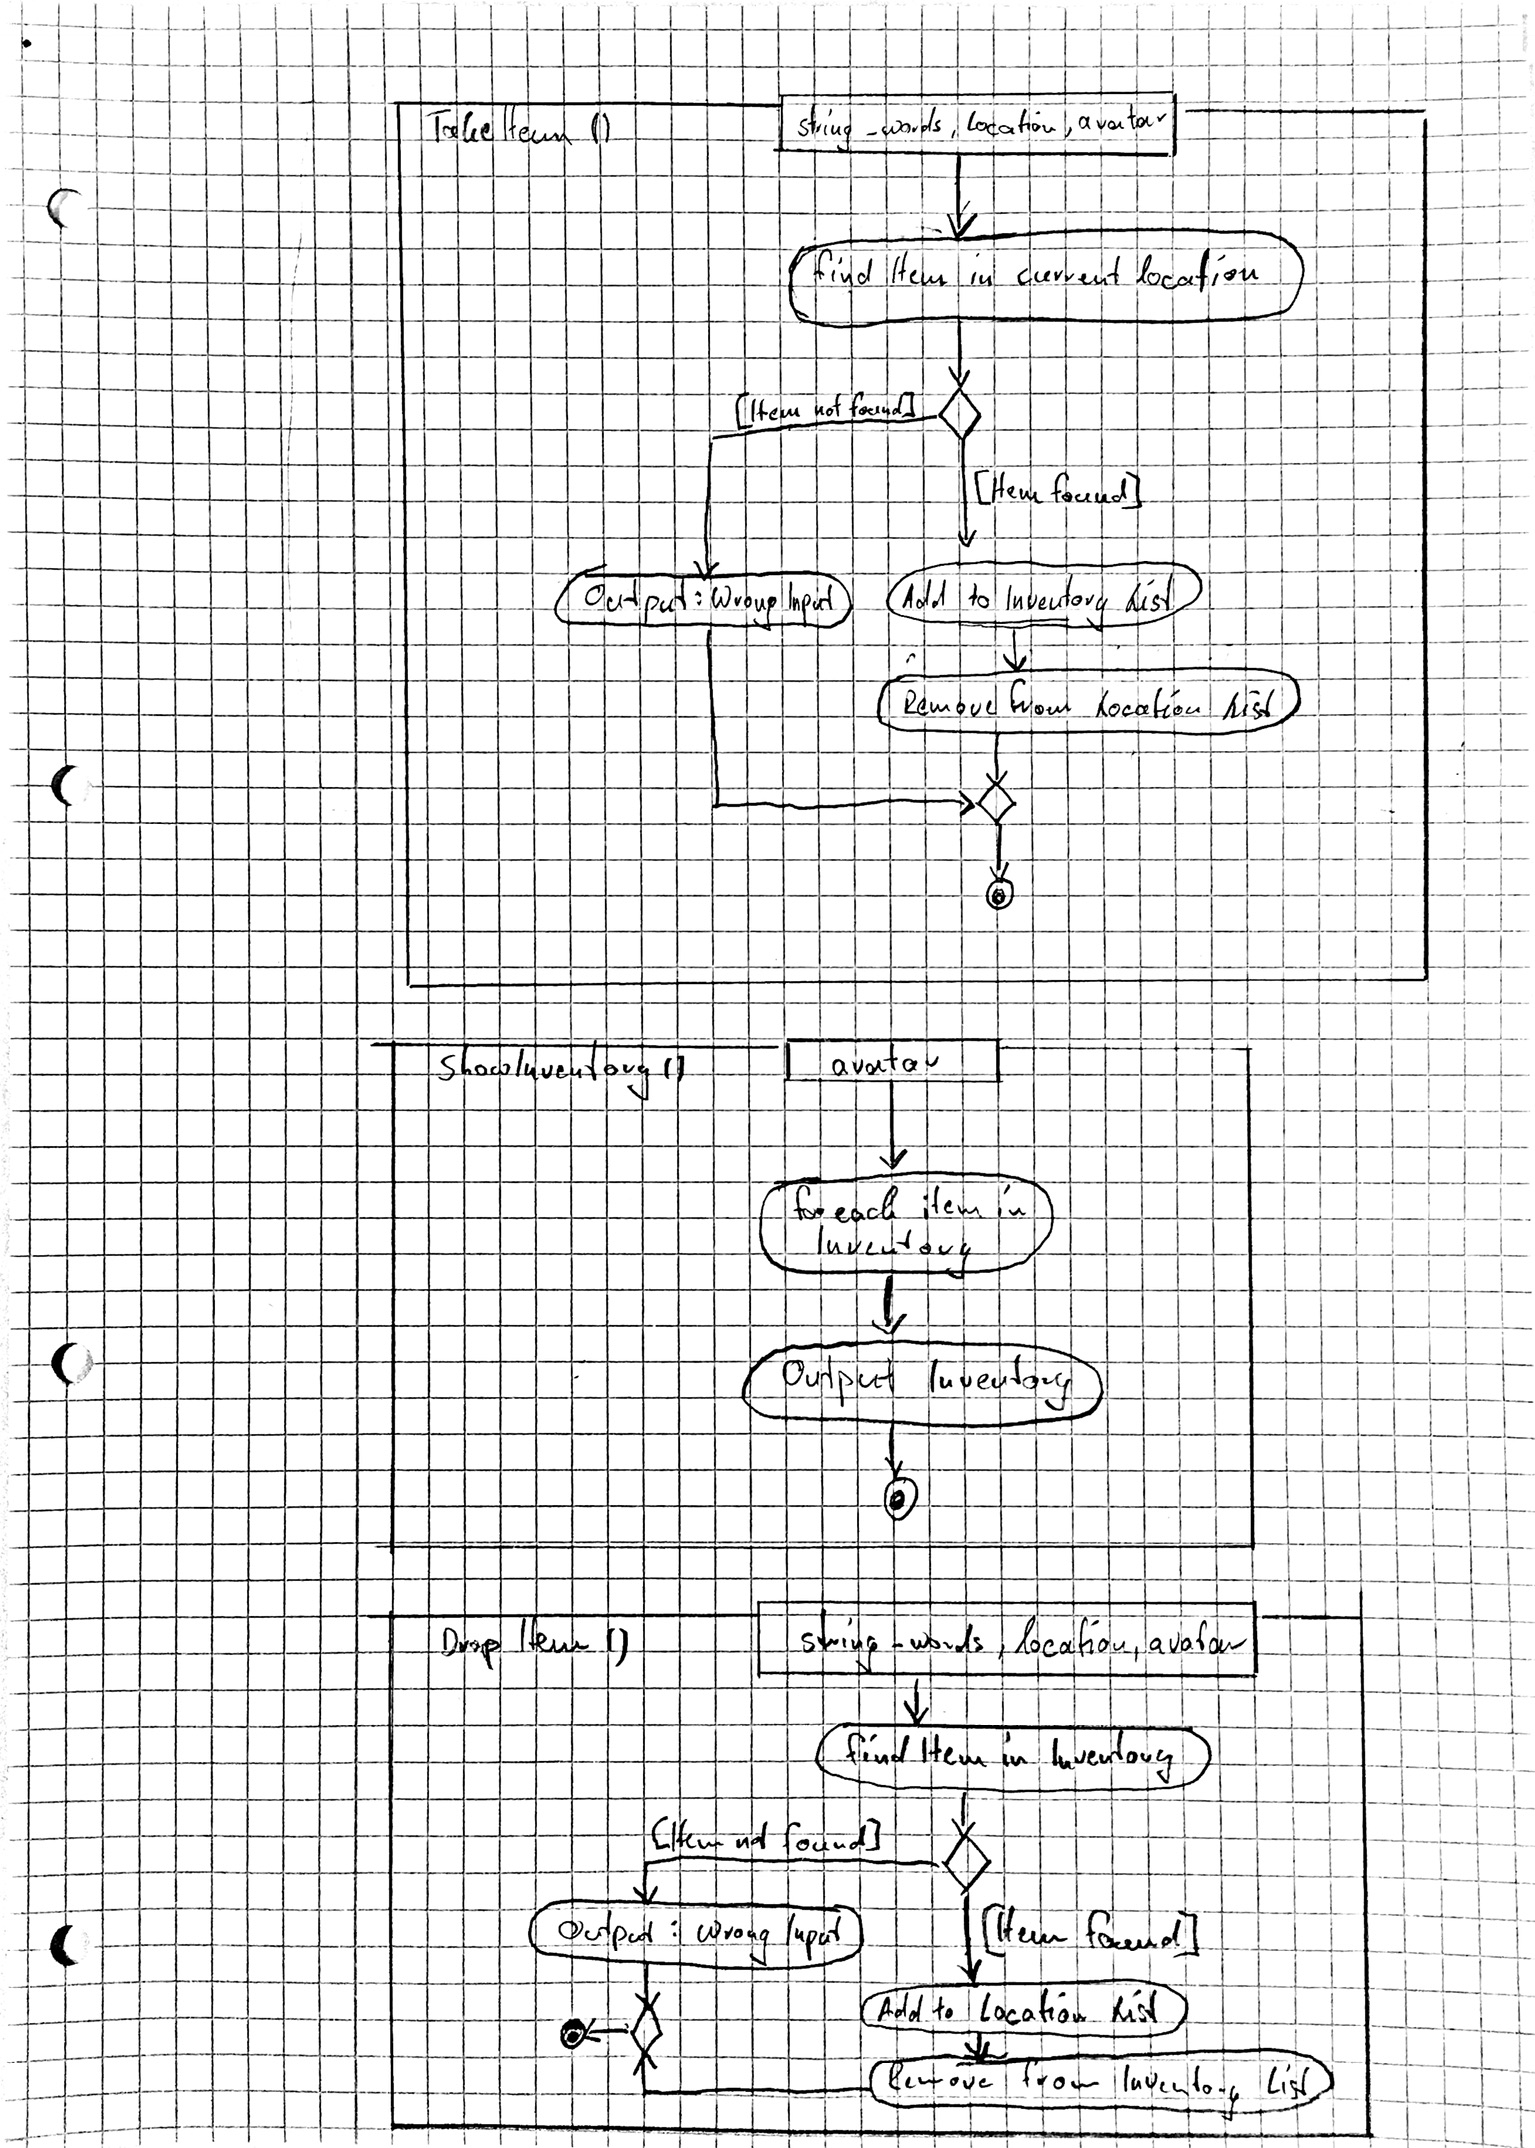 TakeItem ()
string_words, Location, avatar
find Item in current location
[Item not found]
[Item found]
Output: Wrong Input
Add to Inventory List
Remove from Location List
ShowInventory ()
avatar
foreach item in
Inventory
Output Inventory
Drop Item ()
string_words, location, avatar
find Item in Inventory
[Item not found]
[Item found]
Output: Wrong Input
Add to Location List
Remove from Inventory List